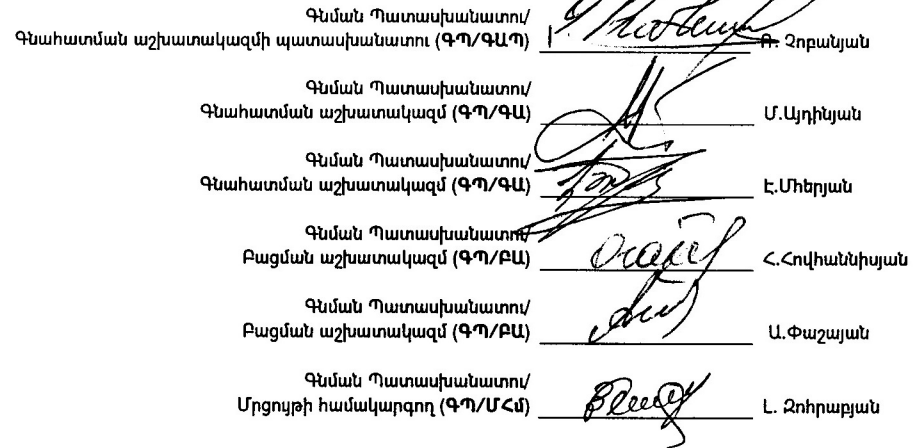 Գնման Պատասխանատու/
Գնահատման աշխատակազմի պատասխանատու (ԳՊ/ԳԱՊ) Չոբանյան
Գնման Պատասխանատու/
Գնահատման աշխատակազմ (ԳՊ/ԳԱ) Մ.Այդինյան
Գնման Պատասխանատու/
Գնահատման աշխատակազմ (ԳՊ/ԳԱ) Է.Մհերյան
Գնման Պատասխանատու/
Բացման աշխատակազմ (ԳՊ/ԲԱ) Հ.Հովհաննիսյան
Գնման Պատասխանատու/
Բացման աշխատակազմ (ԳՊ/ԲԱ) Ա.Փաշայան
Գնման Պատասխանատու/
Մրցույթի համակարգող (ԳՊ/ՄՀմ) Լ. Զոհրաբյան